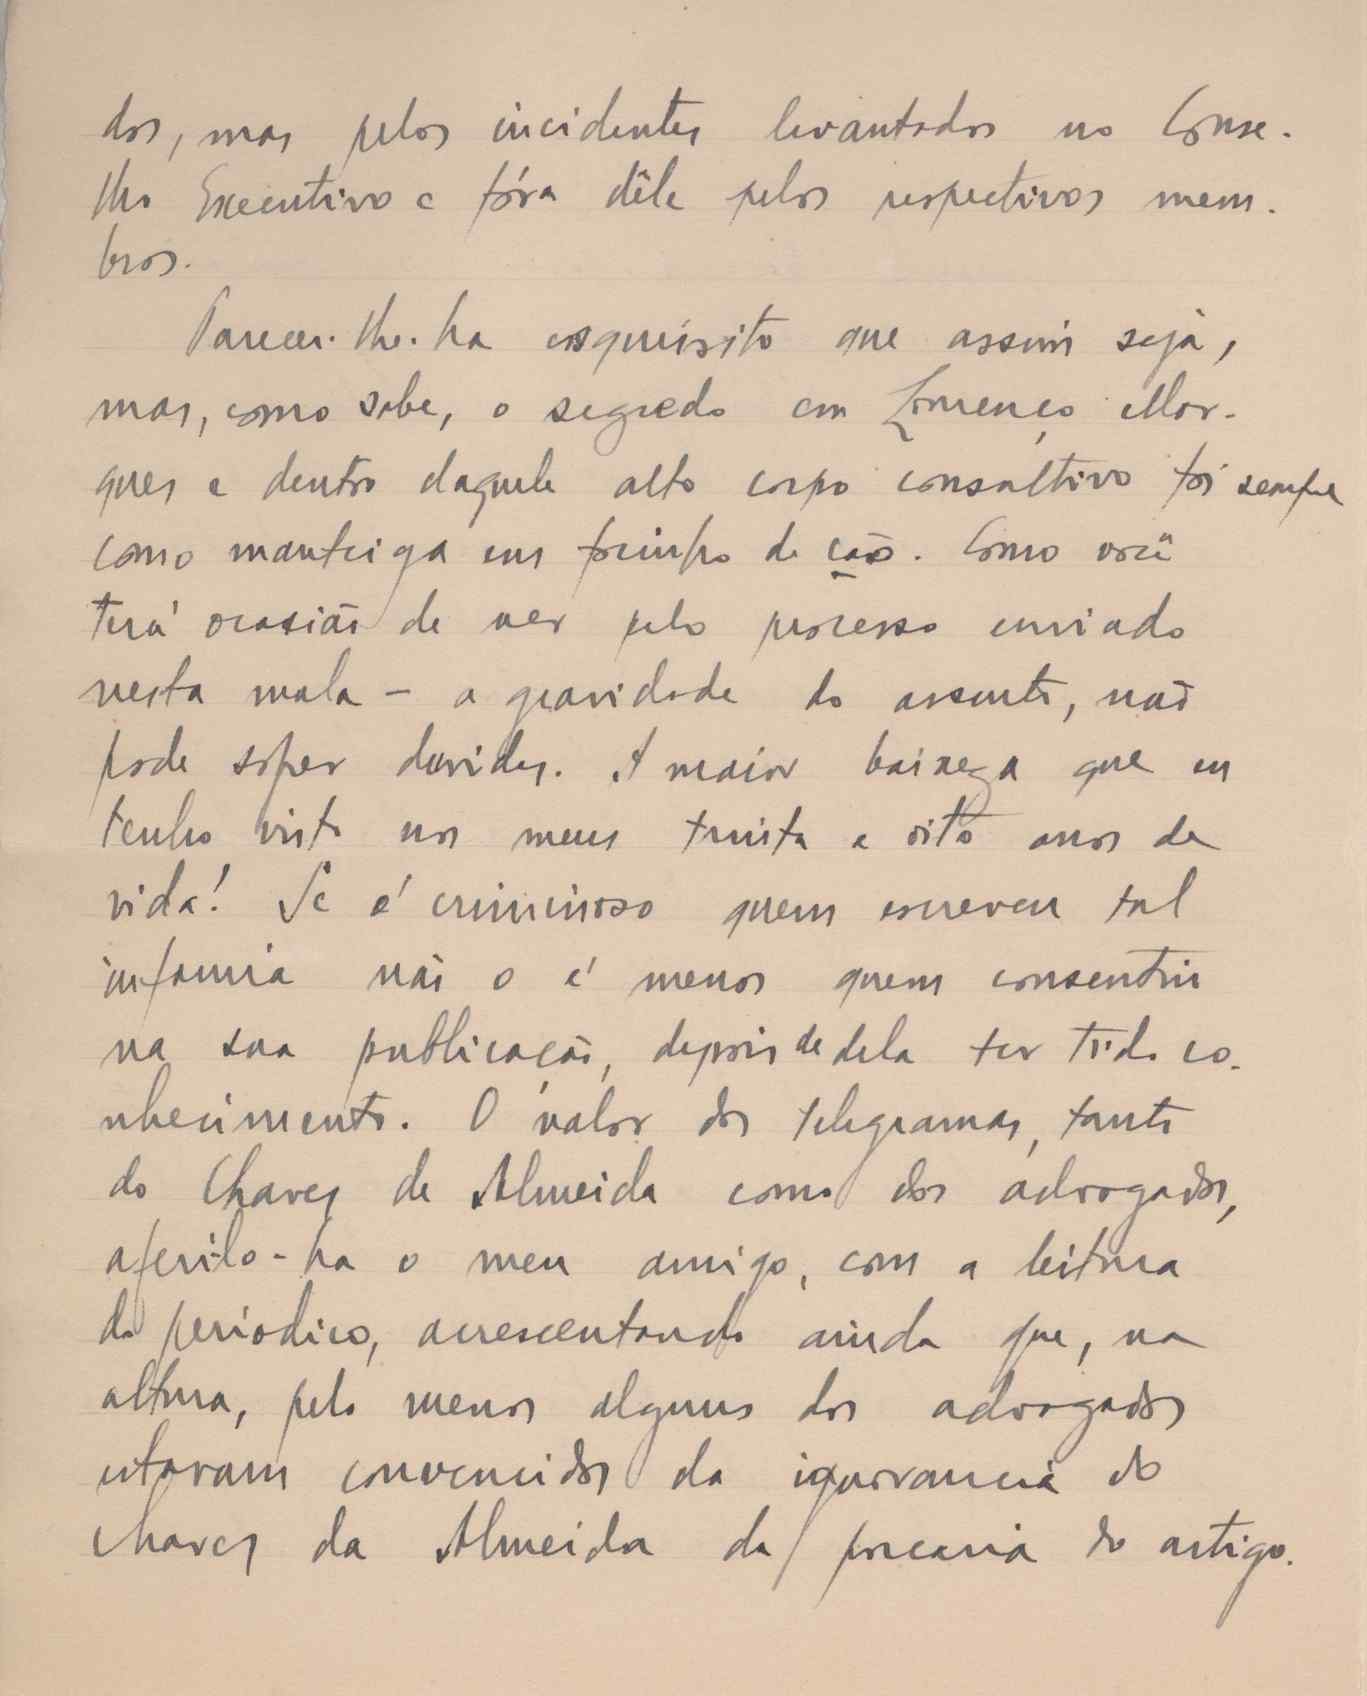 dos, mas pelos incidentes levantados no Conse-
lho Executivo e fóra dêle pelos respectivos mem-
bros.
Parecer-lhe-ha esquisito que assim seja,
mas, como sabe, o segredo em Lourenço Mar-
ques e dentro daquele alto corpo consultivo foi sempre
como manteiga em focinho de cão. Como você
terá ocasião de ver pelo processo enviado
nesta mala – a gravidade do assunto, não
pode sofrer duvidas. A maior baixeza que eu
tenho visto nos meus trinta e oito anos de
vida! Se é criminoso quem escreveu tal
infamia não o é menos quem consentiu
na sua publicação, depois de dela ter tido co-
nhecimento. O valor dos telegramas, tanto
do Chaves de Almeida como dos advogados,
aferi-lo-ha o meu amigo, com a leitura
do periodico, acrescentando ainda que, na
altura, pelo menos alguns dos advogados
estavam convencidos da ignorancia do
Chaves da Almeida da porcaria do artigo.